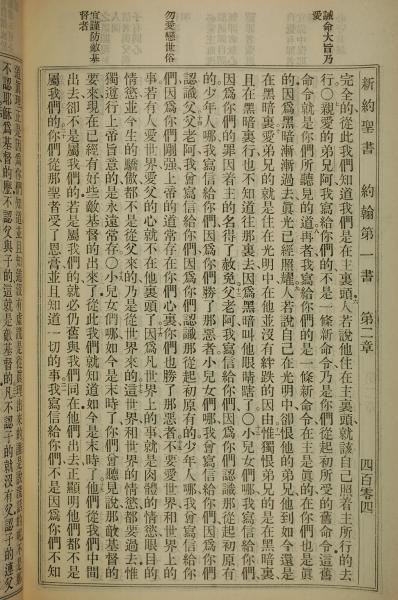 新約聖書 約翰第一書 第二章 四百零四
誡命大旨乃愛
勿愛戀世俗
宜謹防敵基督者
完全的從此我們知道我們是在主裏頭人若說他住在主裏頭就該自己照着主所行的去
行○親愛的弟兄阿我寫信給你們的不是一條新命令乃是你們從起初所受的舊命令這舊
命令就是你們所聽見的道再者我寫給你們的是一條新命令在主是眞的在你們也是眞
的因爲黑暗漸漸過去眞光已經照耀人若說自己在光明中却恨他的弟兄他到如今還是
在黑暗裏愛弟兄的就是住在光明中在他並沒有絆跌的因由惟獨恨弟兄的是在黑暗裏
且在黑暗裏行也不知道往那裏去因爲黑暗叫他眼睛瞎了○小兒女們哪我寫信給你們
因爲你們的罪因着主的名得了赦免父老阿我寫信給你們因爲你們認識那從起初原有
的少年人哪我寫信給你們因爲你們勝了那惡者小兒女們哪我曾寫信給你們因爲你們
認識父父老阿我曾寫信給你們因爲你們認識那從起初原有的少年人哪我曾寫信給你
們因爲你們剛强上帝的道常存在你們心裏你們也勝了那惡者不要愛世界和世界上的
事若有人愛世界愛父的心就不在他裏頭了因爲凡世界上的事就是肉體的情慾眼目的
情慾並今生的驕傲都不是從父來的乃是從世界來的這世界和世界的情慾都要過去惟
獨遵行上帝旨意的是永遠常存○小兒女們哪如今是末時了你們曾聽見說那敵基督的
要來現在已經有好些敵基督的出來了從此我們就知道如今是末時了他們從我們中間
出去却不是屬我們的若是屬我們的就必仍舊與我們同在他們出去正顯明他們都不是
屬我們的你們從那聖者受了恩膏並且知道一切的事我寫信給你們不是因爲你們不知
不認耶穌爲基督的麽不認父與子的這就是敵基督的凡不認子的就沒有父認子的連父